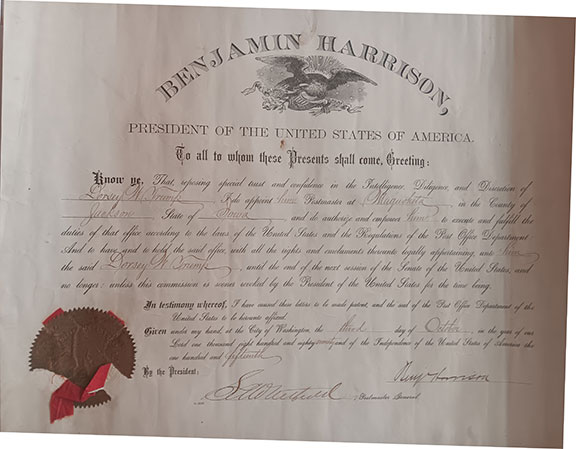 BENJAMIN HARRISON,
PRESIDENT OF THE UNITED STATES OF AMERICA.
To all to whom these Presents shall come, Greeting:
Know ye, That, reposing special trust and confidence in the Intelligence, Diligence, and Discretion of
Dorsey W. I do appoint him Postmaster at Maquoketa in the County of
Jackson State of Iowa and do authorize and empower him to execute and fulfill the
duties of that office according to the laws of the United States and the Regulations of the Post Office Department
And to have and to hold the said office, with all the rights and emoluments thereunto legally appertaining, unto him
the said Dorsey W. , until the end of the next session of the Senate of the United States, and
no longer: unless this commission be sooner revoked by the President of the United States for the time being.
In testimony whereof, I have caused these letters to be made patent, and the seal of the Post Office Department of the
United States to be hereunto affixed.
Given under my hand, at the City of Washington the third day of October, in the year of our
Lord one thousand eight hundred and eighty and of the Independence of the United States of America the
one hundred and
By the President:
Benj Harrison
Postmaster General.